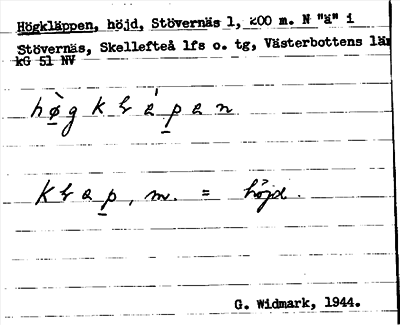 Högkläppen, höjd, Stövernäs 1, 200 m. N "ä" i
Stövernäs, Skellefteå lfs o. tg, Västerbottens län
kG 51 NV
hø̀gkḷápan
kḷap, m. = höjd.
G. Widmark, 1944.